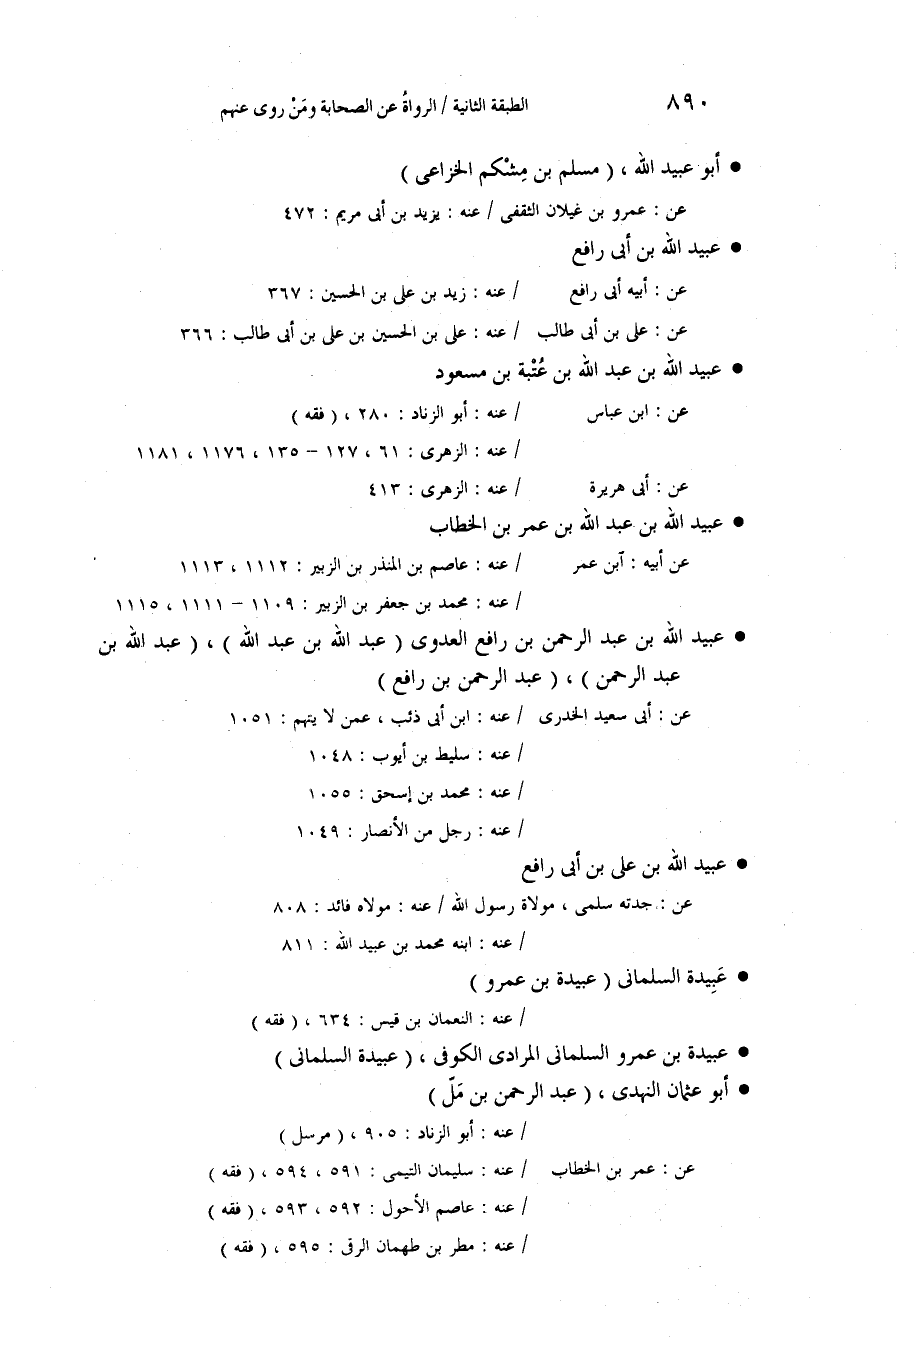 ٨٩٠ الطبقة الثانية / الرواةُ عن الصحابة ومَنْ روى عنهم
● أبو عبيد الله ، ( مسلم بن مِشْكم الخزاعى )
عن : عمرو بن غيلان الثقفى / عنه : يزيد بن أبى مريم : ٤٧٢
● عبيد الله بن أبى رافع
عن : أبيه أبى رافع / عنه : زيد بن على بن الحسين : ٣٦٧
عن : على بن أبى طالب / عنه : على بن الحسين بن على بن أبى طالب : ٣٦٦
● عبيد الله بن عبد الله بن عُتْبة بن مسعود
عن : ابن عباس / عنه : أبو الزناد : ٢٨٠ ، ( فقه )
/ عنه : الزهرى : ٦١ ، ١٢٧ – ١٣٥ ، ١١٧٦ ، ١١٨١
عن : أبى هريرة / عنه : الزهرى : ٤١٣
● عبيد الله بن عبد الله بن عمر بن الخطاب
عن أبيه : آبن عمر / عنه : عاصم بن المنذر بن الزبير : ١١١٢ ، ١١١٣
/ عنه : محمد بن جعفر بن الزبير : ١١٠٩ – ١١١١ ، ١١١٥
● عبيد الله بن عبد الرحمن بن رافع العدوى ( عبد الله بن عبد الله ) ، ( عبد الله بن
عبد الرحمن ) ، ( عبد الرحمن بن رافع )
عن : أبى سعيد الخدرى / عنه : ابن أبى ذئب ، عمن لا يتهم : ١٠٥١
/ عنه : سليط بن أيوب : ١٠٤٨
/ عنه : محمد بن إسحق : ١٠٥٥
/ عنه : رجل من الأنصار : ١٠٤٩
● عبيد الله بن على بن أبى رافع
عن : جدته سلمى ، مولاة رسول الله / عنه : مولاه فائد : ٨٠٨
/ عنه : ابنه محمد بن عبيد الله : ٨١١
● عَبِيدة السلمانى ( عبيدة بن عمرو )
/ عنه : النعمان بن قيس : ٦٣٤ ، ( فقه )
● عبيدة بن عمرو السلمانى المرادى الكوفى ، ( عبيدة السلمانى )
● أبو عثمان النهدى ، ( عبد الرحمن بن مَلّ )
/ عنه : أبو الزناد : ٩٠٥ ، ( مرسل )
عن : عمر بن الخطاب / عنه : سليمان التيمى : ٥٩١ ، ٥٩٤ ، ( فقه )
/ عنه : عاصم الأحول : ٥٩٢ ، ٥٩٣ ، ( فقه )
/ عنه : مطر بن طهمان الرقى : ٥٩٥ ، ( فقه )